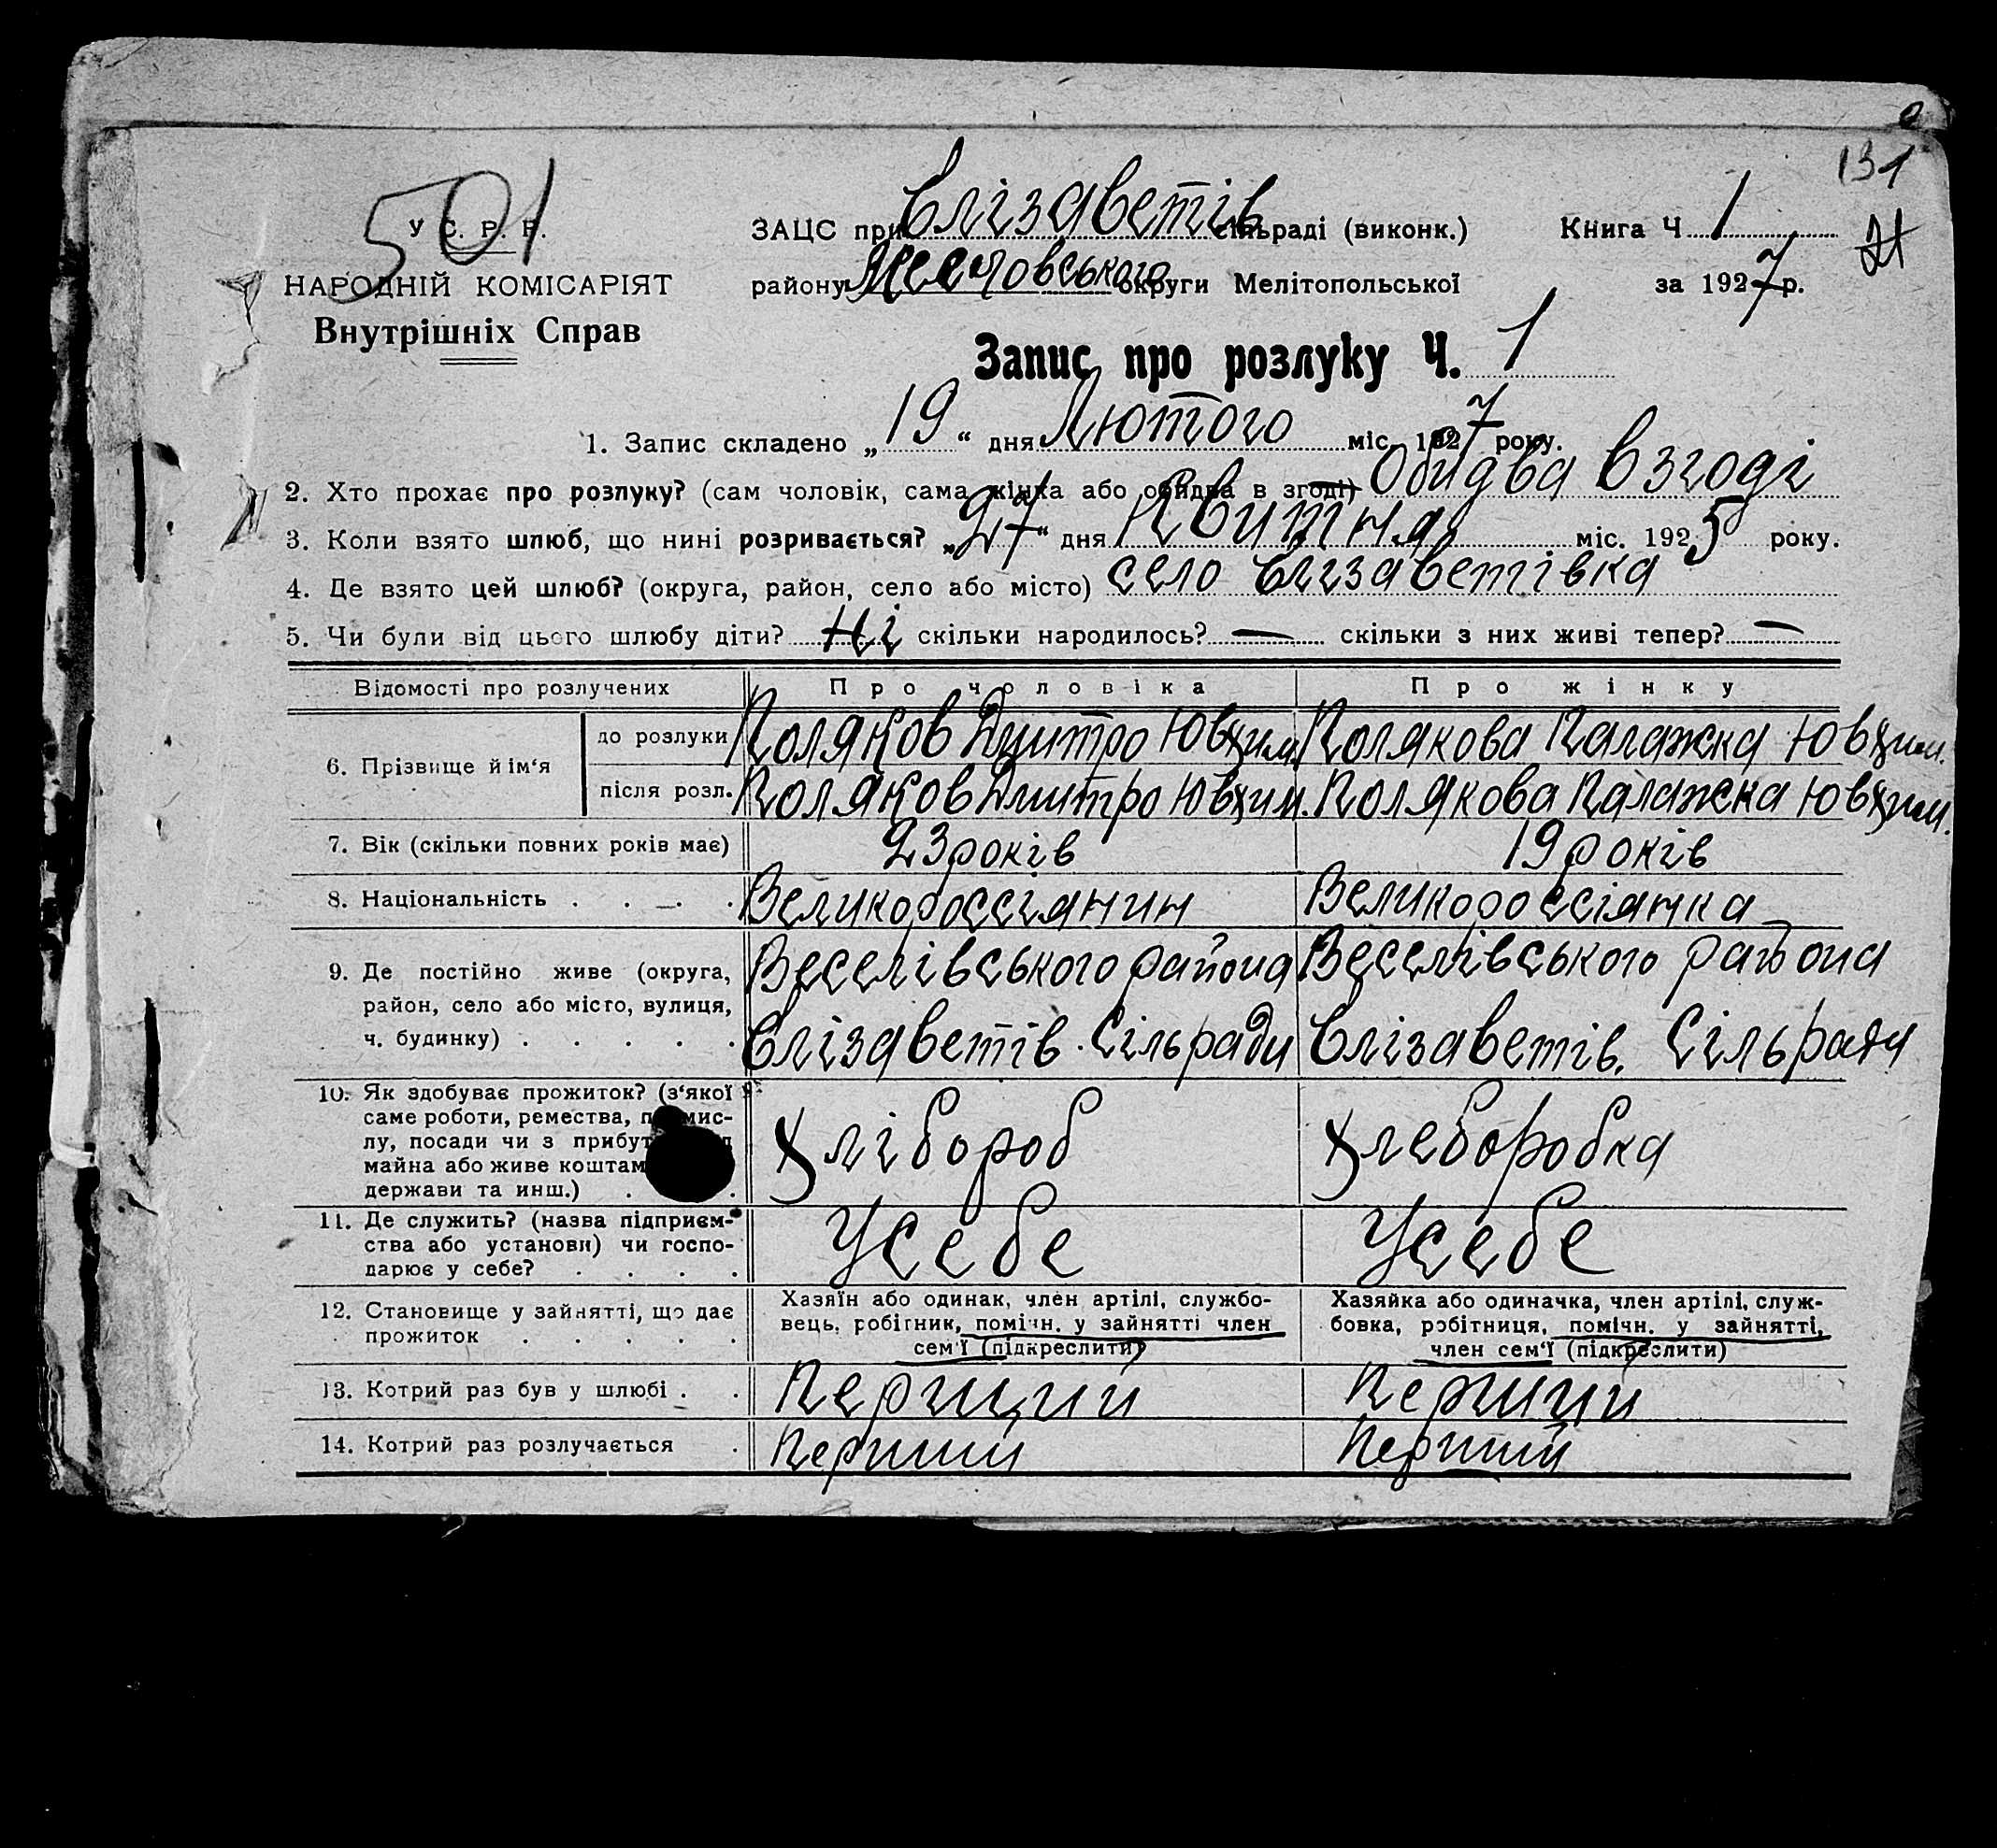 131
501
У С. Р. Р.
НАРОДНІЙ КОМІСАРІЯТ
Внутрішніх Справ
ЗАЦС при Єлізаветів сільраді (виконк.)
району округи Мелітопольської
Книга Ч 1
за 1927 р.
Запис про розлуку Ч. 1
1. Запис складено „19“ дня Лютого міс. 1927 року.
2. Хто прохає про розлуку? (сам чоловік, сама жінка або обидва в згоді) Обидва в згоді
3. Коли взято шлюб, що нині розривається? „27“ дня Квитня міс. 1925 року.
4. Де взято цей шлюб? (округа, район, село або місто) село Єлізаветівка
5. Чи були від цього шлюбу діти? Ні скільки народилось? — скільки з них живі тепер? —
Відомості про розлучених Про чоловіка Про жінку
6. Прізвище й ім‘я
до розлуки Поляков Дмитро Ювхим. Полякова Палажка Ювхим.
після розл. Поляков Дмитро Ювхим. Полякова Палажка Ювхим.
7. Вік (скільки повних років має) 23 років 19 років
8. Національність . . . . Великороссіянин Великороссіянка
9. Де постійно живе (округа, Веселівського района Веселівського района
район, село або місто, вулиця,
ч. будинку) . . . . . Єлізаветів. Сільради Єлізаветів. Сільради
10. Як здобуває прожиток? (з‘якої
саме роботи, ремества,
лу, посади чи з
майна або живе
держави та инш.) . . Хлібороб Хлеборобка
11. Де служить? (назва підприєм-
ства або установи) чи госпо-
дарює у себе? . . . . У себе У себе
12. Становище у зайнятті, що дає
прожиток . . . . .
Хазяїн або одинак, член артілі, службо-
вець, робітник, помічн. у зайнятті член
сем‘ї (підкреслити)
Хазяйка або одиначка, член артілі, служ-
бовка, робітниця, помічн. у зайнятті,
член сем‘ї (підкреслити)
13. Котрий раз був у шлюбі . . Перший Перший
14. Котрий раз розлучається . Перший Перший